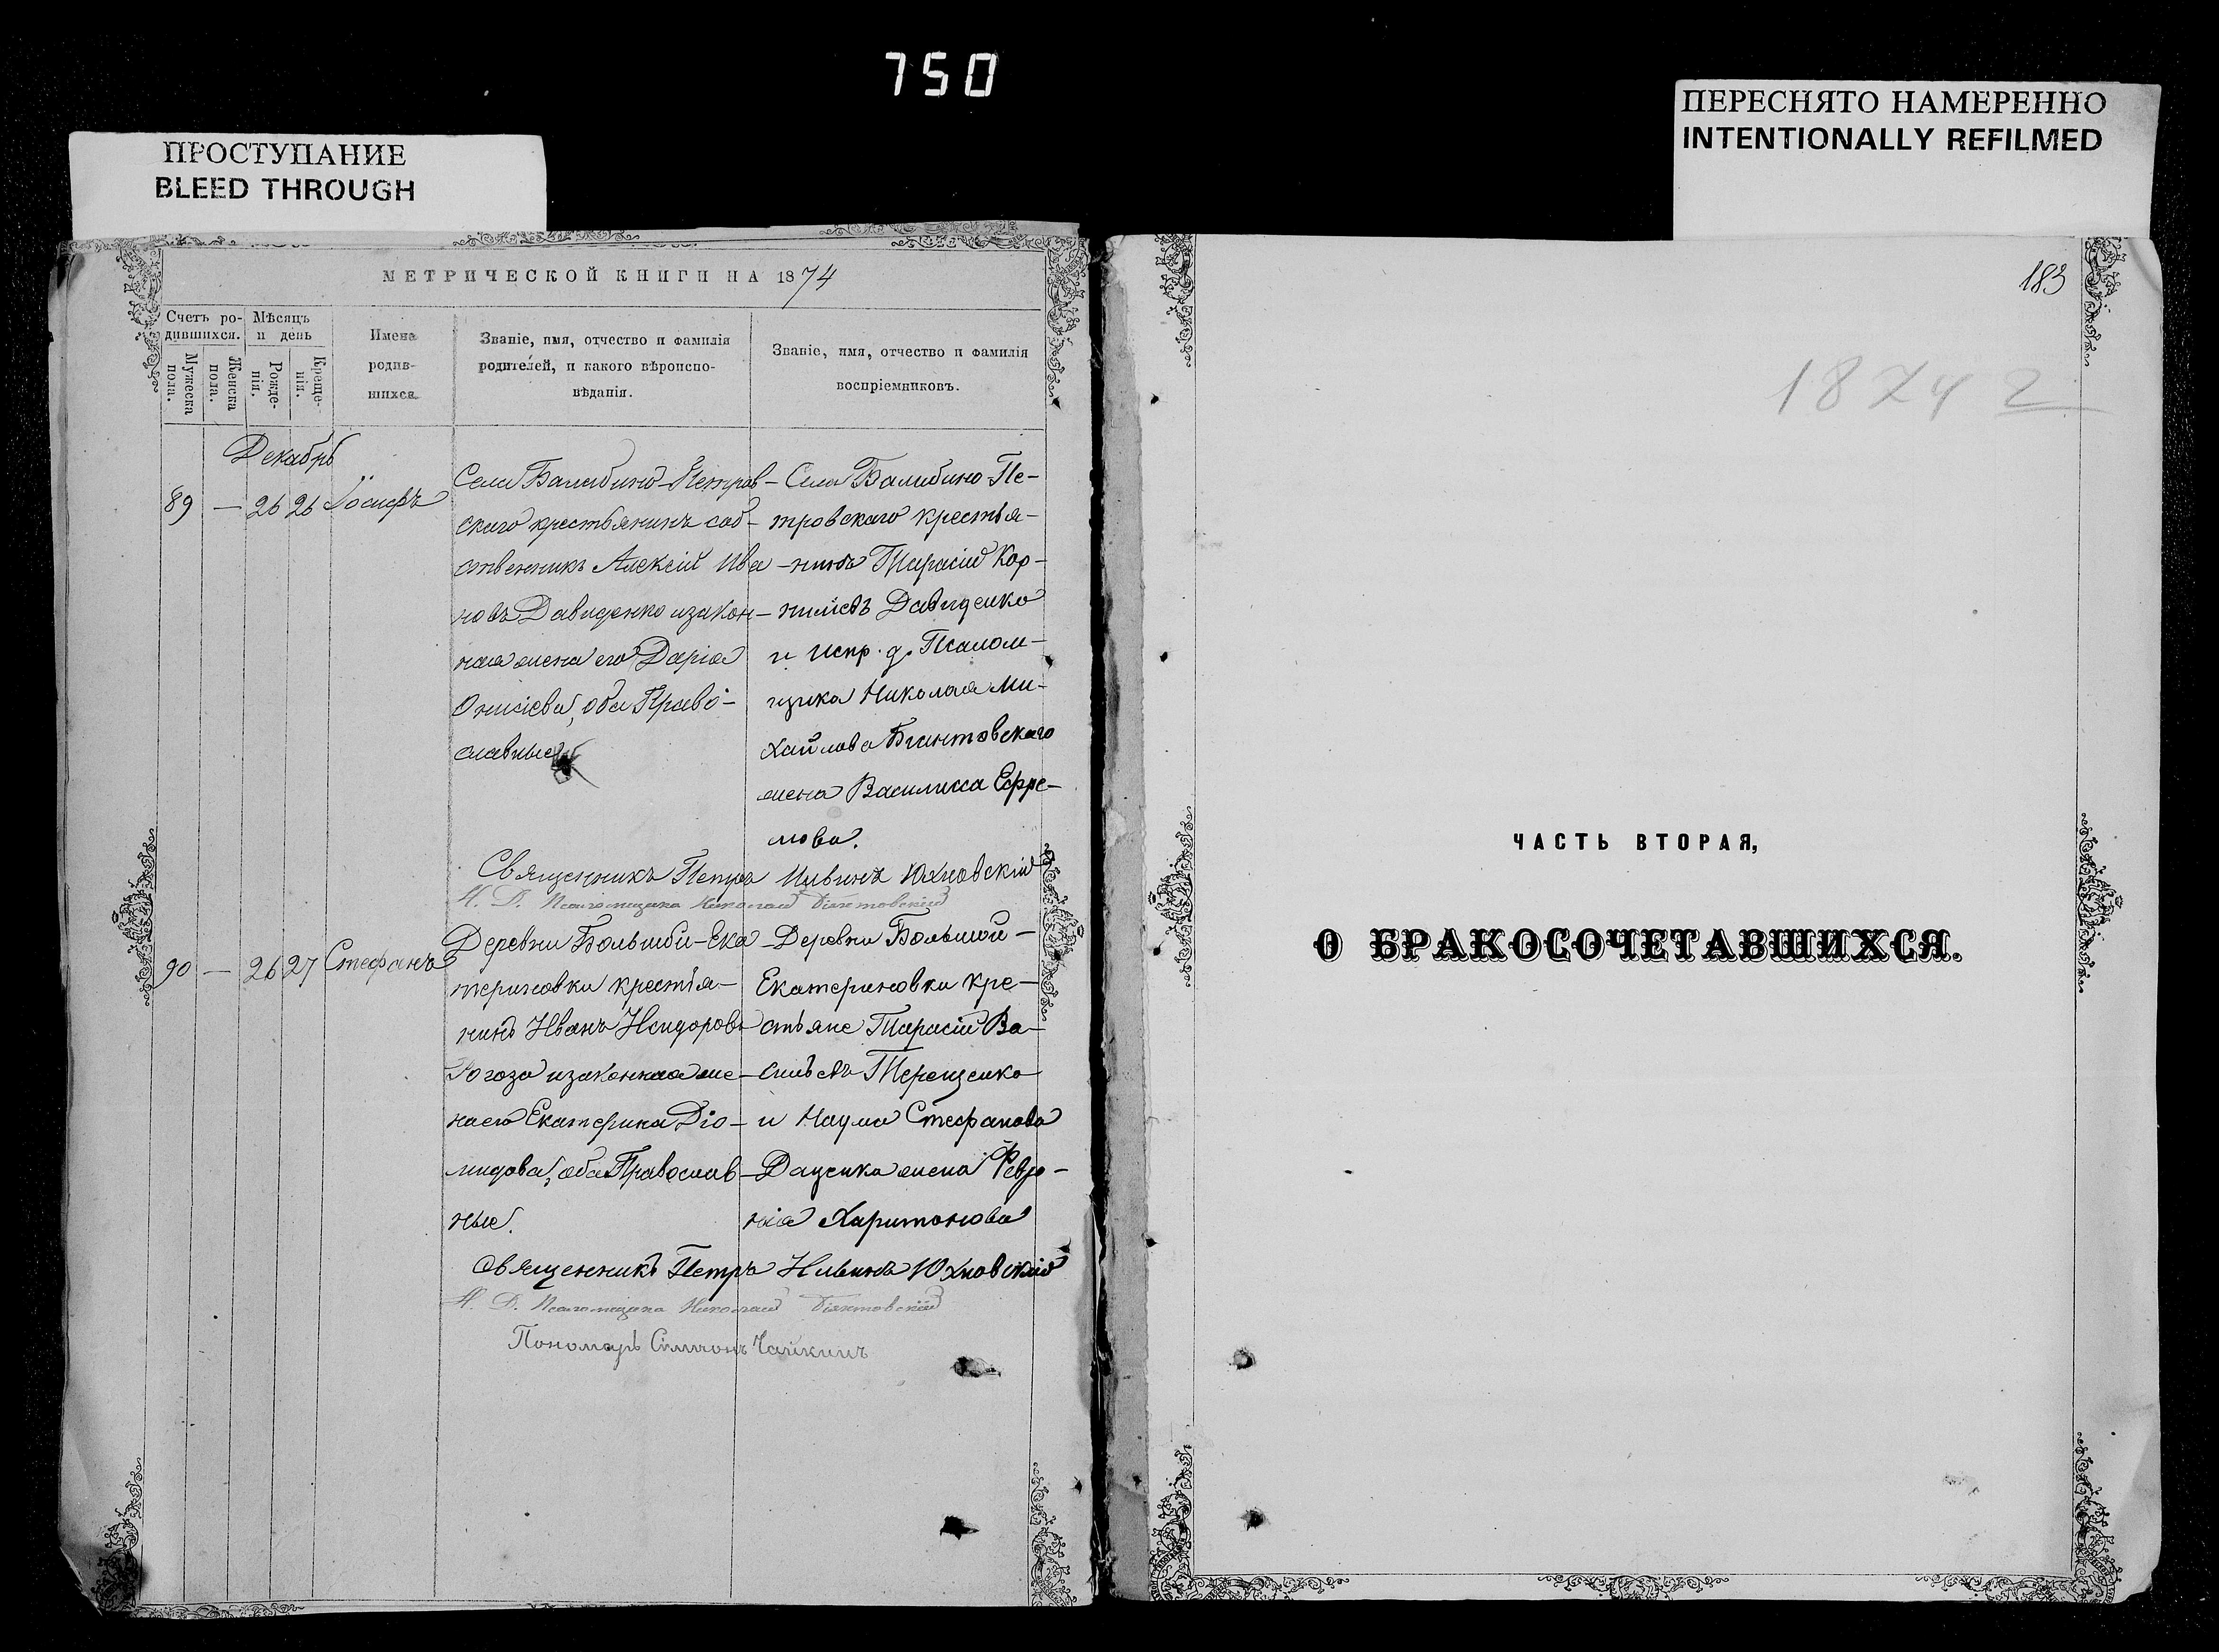 750
ПРОСТУПАНИЕ
BLEED THROUGH
ПЕРЕСНЯТО НАМЕРЕННО
INTENTIONALLY REFILMED
МЕТРИЧЕСКОЙ КНИГИ НА 1874
Счетъ ро-
дившихся.
Мужеска
пола.
Женска
пола.
Мѣсяцъ
и день
Рожде-
нія.
Креще-
нія.
Имена
родив-
шихся.
Званіе, имя, отчество и фамилія
родителей, и какого вѣроиспо-
вѣданія.
Званіе, имя, отчество и фамилія
воспріемниковъ.
Декабрь
89 — 26 26 Іосифъ
Села Балабино-Петров-
скаго крестьянинъ соб-
ственникъ Алексій Ива-
новъ Давиденко и закон-
ная жена его Дарія
оба Право-
славные
Села Балабино Пе-
тровскаго крестья-
нинъ Тарасій Кор-
нилієвъ Давиденко
и испр. д. Псалом-
щика Николая Ми-
хайлова Біянтовскаго
жена Василиса Ефре-
мова.
Священникъ Петръ Ильинъ Юхновскій
И. Д. Псаломщика Николай Біянтовскій
90 — 26 27 Стефанъ
Деревни Большой-Ека-
териновки крестья-
нинъ Иванъ Исидоровъ
Рогоза и законная же-
на его Екатерина Діо-
мидова, оба Православ-
ные.
Деревни Большой-
Екатериновки кре-
стьяне Тарасій Ва-
сильевъ Терещенко
и Наума Стефанова
Даценка жена Февро-
нія Харитонова
Священникъ Петръ Ильинъ Юхновскій
И. Д. Псаломщика Николай Біянтовскій
Пономарь Симеонъ Чайкинъ
183
1874 2
ЧАСТЬ ВТОРАЯ,
О БРАКОСОЧЕТАВШИХСЯ.